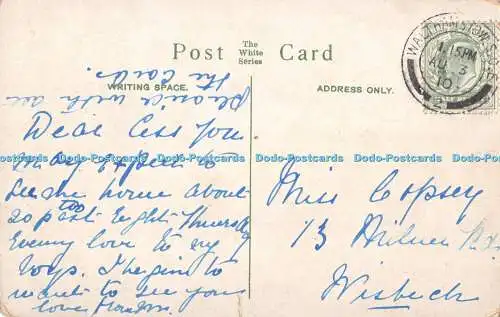 Post Card
The
White
Series
WRITING SPACE.
ADDRESS ONLY.
WALTHAMSTOW
1.15PM
AU 3
10
the Card.
please with
Dear Cess you
may Expect to
see me home about
20 past Eight Thursday
Evening love to my
boys. I begin to
want to see you
love from
Miss Copsey
13 Milner Rd
Wisbech
Dodo-Postcards Dodo-Postcards Dodo-Postcards Dodo-Postcards Dodo-Postcards Dodo-Postcards